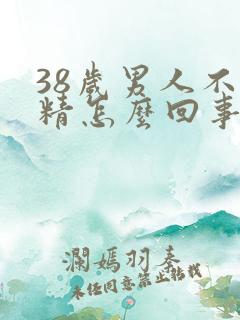 38歲男人不
精怎麼回事
瀾媽羽奏
未任同意禁止轉載